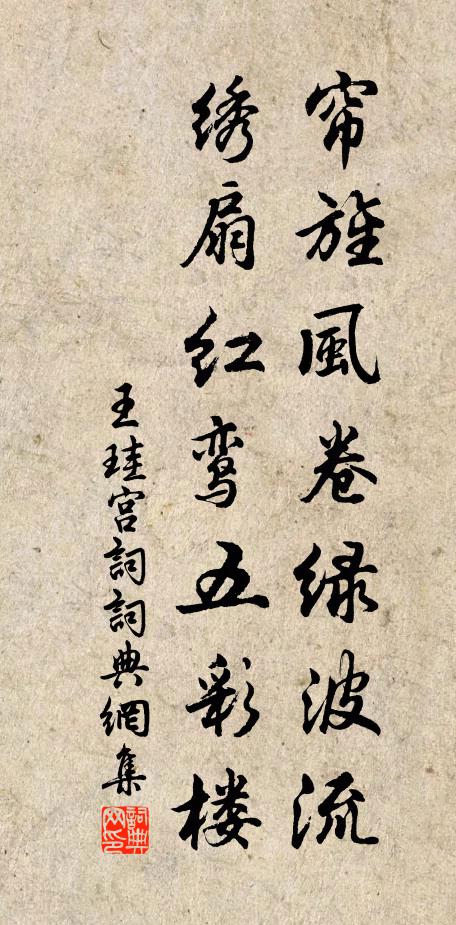 帘旌風卷绿波流
绣扇红鸾五彩楼
王珪宫詞詞典網集
詞典网印